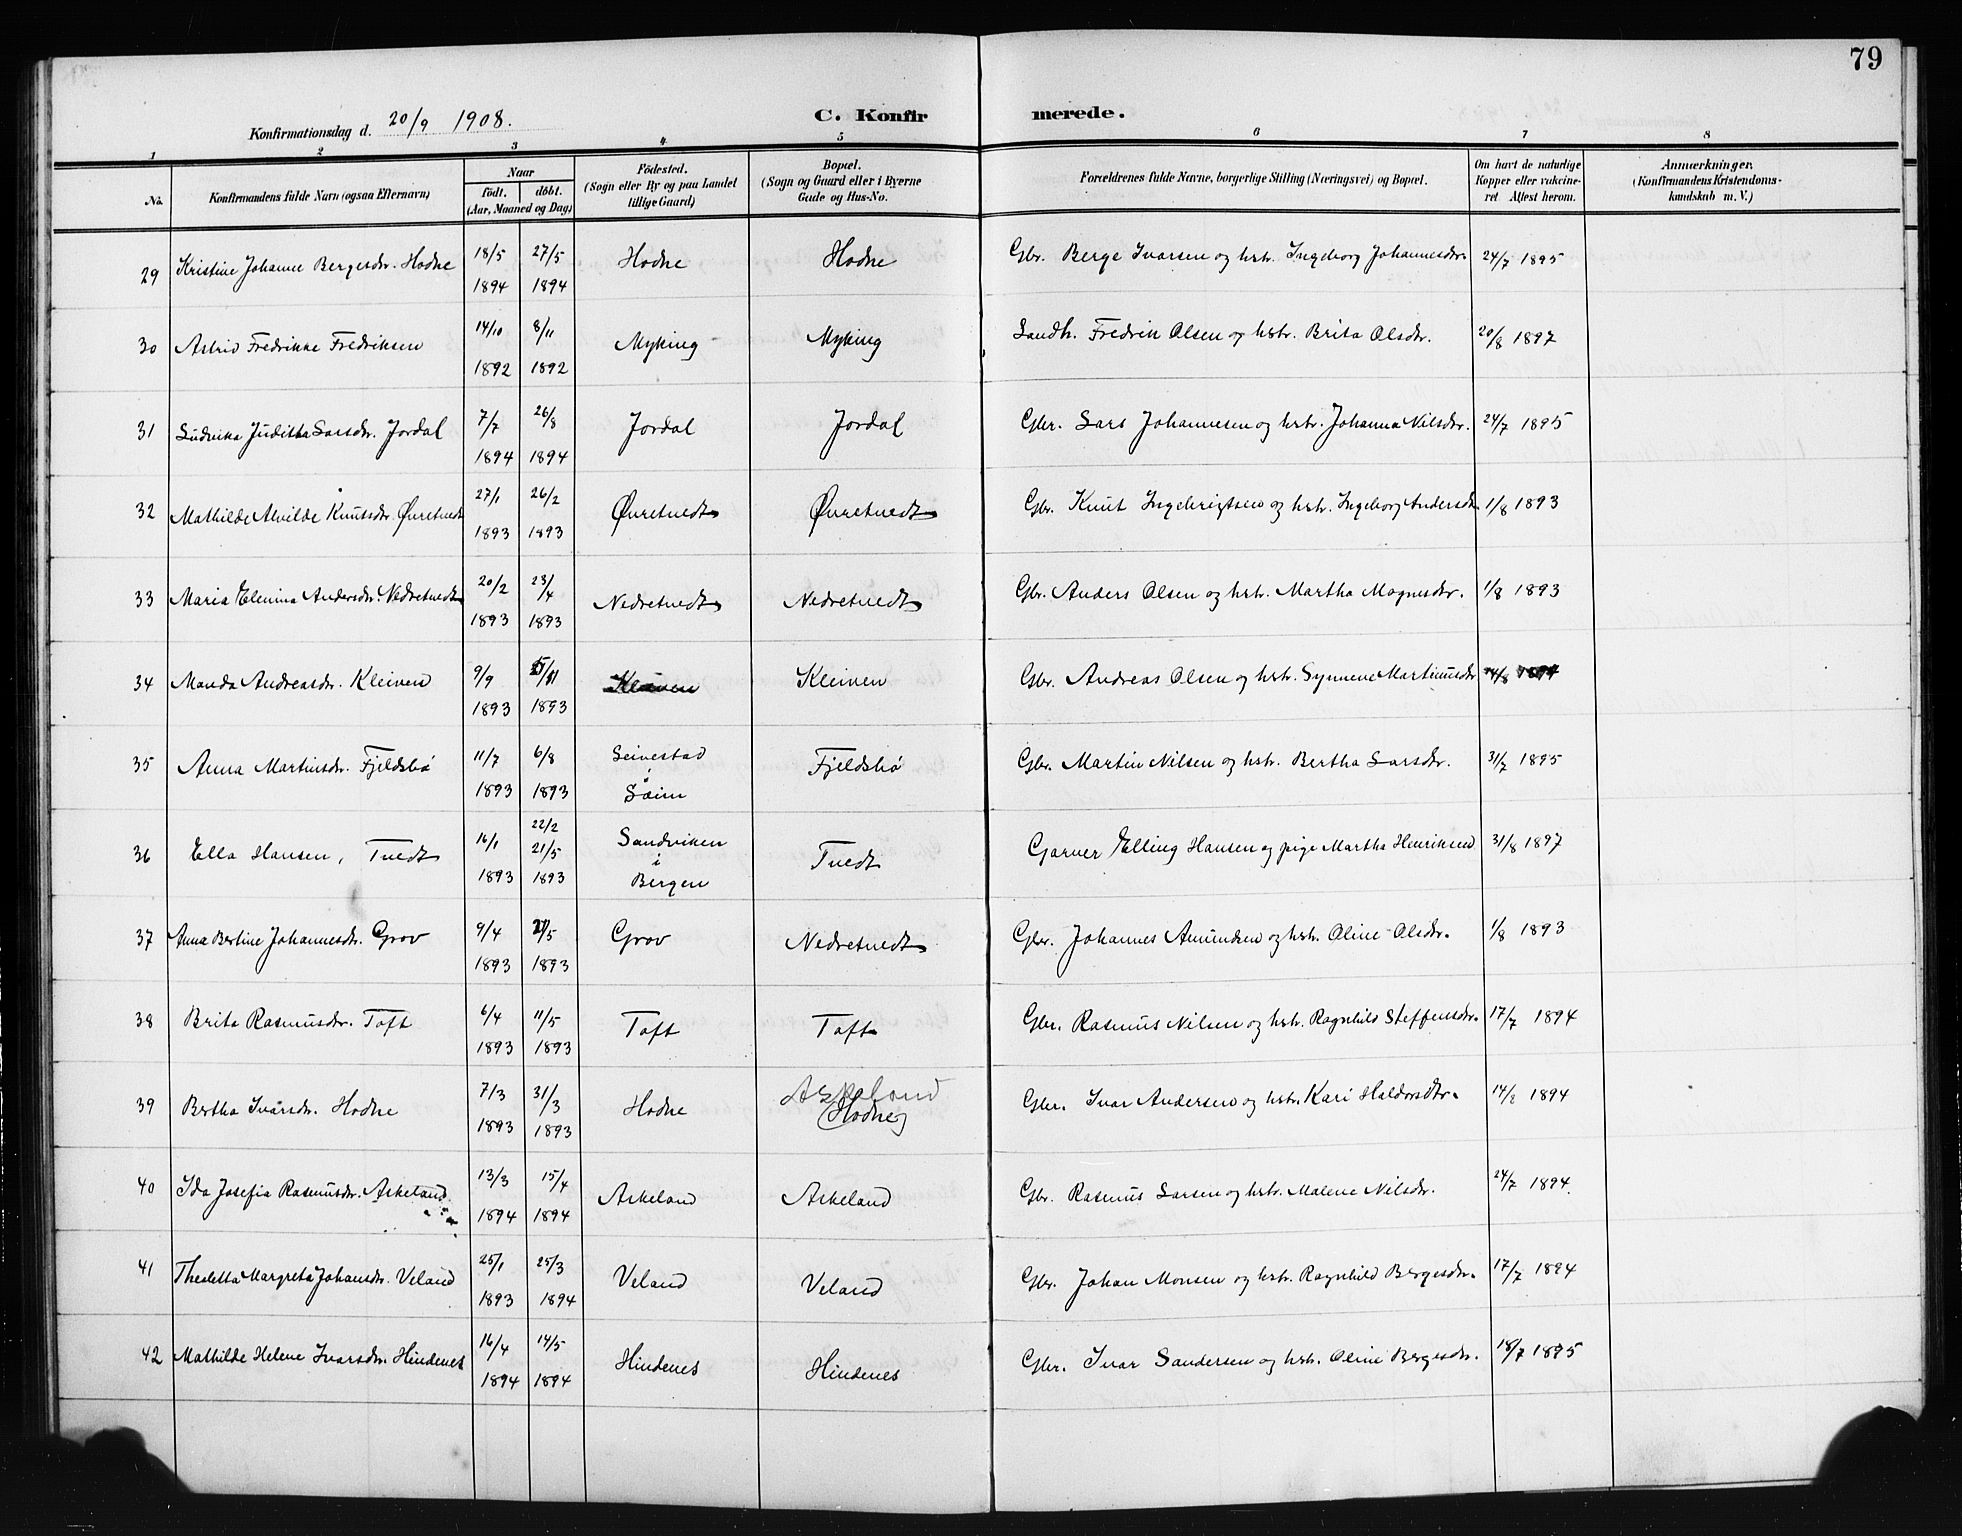 79
Konfirmationsdag d. 20/9 1908. C. Konfir merede.
1 2 3 4 5 6 7 8
No. Konfirmandens fulde Navn (ogsaa Efternavn) Naar födt. döbt. (Aar, Maaned og Dag) Födested. (Sogn eller By og paa Landet tillige Gaard) Bopæl. (Sogn og Gaard eller i Byerne Gade og Hus-No. Forældrenes fulde Navne, borgerlige Stilling (Næringsvei) og Bopæl. Om havt de naturlige Kopper eller vakcineret Attest herom. Anmærkninger. (Konfirmandens Kristendomskundskab m. V.)
29 Kristine Johanne Bergesdr. Hodne 18/5 1894 27/5 1894 Hodne Hodne Gbr. Berge Ivarsen og hstr. Ingeborg Johannesdr. 24/7 1895
30 Astrid Fredrikke Fredriksen 14/10 1892 8/11 1892 Myking Myking Landh. Fredrik Olsen og hstr. Brita Olsdr. 20/8 1897
31 Ludvika Juditha Larsdr. Jordal 7/7 1894 26/8 1894 Jordal Jordal Gbr. Lars Johannesen og hstr. Johanna Nilsdr. 24/7 1895
32 Mathilde Alvilde Knutsdr. Øvretvedt 27/1 1893 26/2 1893 Øvretvedt Øvretvedt Gbr. Knut Ingebrigtsen og hstr. Ingeborg Andersdr. 1/8 1893
33 Maria Elenina Andersdr. Nedretvedt 20/2 1893 23/4 1893 Nedretvedt Nedretvedt Gbr. Anders Olsen og hstr. Martha Magnesdr. 1/8 1893
34 Manda Andreasdr. Kleiven 9/9 1893 /11 1893 Kleiven Kleiven Gbr. Andreas Olsen og hstr. Synneve Martinusdr /8 1894
35 Anna Martinsdr. Fjeldsbø 11/7 1893 6/8 1893 Seivestad i Sæim Fjeldsbø Gbr. Martin Nilsen og hstr. Bertha Larsdr. 31/7 1895
36 Ella Hansen, Tvedt 16/1 1893 22/2 21/5 1893 Sandviken i Bergen Tvedt Garver Elling Hansen og pige Martha Henriksen 31/8 1897
37 Anna Bertine Johannesdr. Grov 9/4 1893 21/5 1893 Grov Nedretvedt Gbr. Johannes Amundsen og hstr. Oline Olsdr. 1/8 1893
38 Brita Rasmusdr. Toft 6/4 1893 11/5 1893 Toft Toft Gbr. Rasmus Nilsen og hstr. Ragnhild Steffensdr. 17/7 1894
39 Bertha Ivarsdr. Hodne 7/3 1893 31/3 1893 Hodne Askeland (Hodne) Gbr. Ivar Andersen og hstr. Kari Haldorsdtr. 14/8 1894
40 Ida Josefia Rasmusdr. Askeland 13/3 1894 15/4 1894 Askeland Askeland Gbr. Rasmus Larsen og hstr. Malene Nilsdr. 24/7 1894.
41 Thealetta Margreta Johansdr. Veland 25/1 1893 25/3 1894 Veland Veland Gbr. Johan Monsen og hstr. Ragnhild Bergesdr. 17/7 1894
42 Mathilde Helene Ivarsdr. Hindenes 16/4 1894 14/5 1894 Hindenes Hindenes Gbr. Ivar Sandersen og hstr. Oline Bergesdr. 18/7 1895